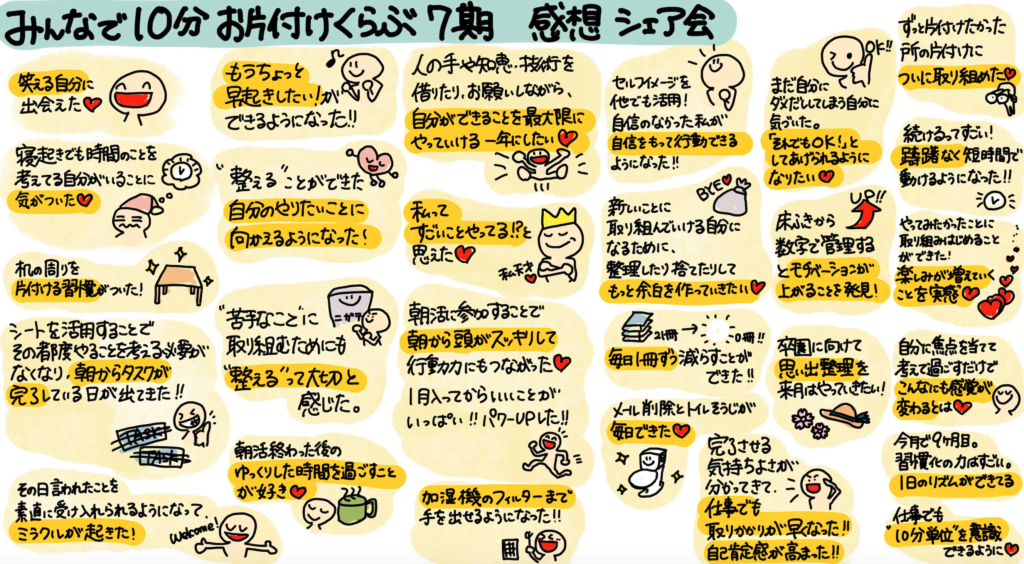 みんなで10分 お片付けくらぶ 7期 感想 シェア会
笑える自分に
出会えた
寝起きでも時間のことを
考えてる自分がいることに
気がついた
机の周りを
片付ける習慣がついた!
シートを活用することで
その都度やることを考える必要が
なくなり、朝からタスクが
完了している日が出てきた!!
TASK
TASK
その日言われたことを
素直に受け入れられるようになって、
ミラクルが起きた!
Welcome!
もうちょっと
早起きしたい!が
できるようになった!!
"整える"ことができた
自分のやりたいことに
向かえるようになった!
"苦手なこと"に
取り組むためにも
"整える"って大切と
感じた。
ニガテ
朝活終わった後の
ゆっくりした時間を過ごすこと
が好き
人の手や知恵、技術を
借りたり、お願いしながら、
自分ができることを最大限に
やっていける一年にしたい
私って
すごいことやってる!?と
思えた
私天才
朝活に参加することで
朝から頭がスッキリして
行動力にもつながった
1月入ってからいいことが
いっぱい!!パワーUPした!!
加湿機のフィルターまで
手を出せるようになった!!
セルフイメージを
他でも活用!
自信のなかった私が
自信をもって行動できる
ようになった!!
BYE
新しいことに
取り組んでいける自分に
なるために、
整理したり捨てたりして
もっと余白を作っていきたい
21冊 → 0冊!!
毎日1冊ずつ減らすことが
できた!!
メール削除とトイレそうじが
毎日できた
完了させる
気持ちよさが
分かってきて、
仕事でも
取りかかりが早くなった!!
自己肯定感が高まった!!
OK!!
まだ自分に
ダメだしてしまう自分に
気づいた。
「それでもOK!」と
してあげられるように
なりたい
UP!!
床ふきから
数字で管理する
とモチベーションが
上がることを発見!
卒園に向けて
思い出整理を
来月はやっていきたい!
ずっと片付けたかった
所の片付けに
ついに取り組めた
続けるってすごい!
躊躇なく短時間で
動けるようになった!!
やってみたかったことに
取り組みはじめること
ができた!
楽しみが増えていく
ことを実感
自分に焦点を当てて
考えて過ごすだけで
こんなにも感覚が
変わるとは
今月で9ヶ月目。
習慣化の力はすごい。
1日のリズムができてる
仕事でも
"10分単位"を意識
できるように